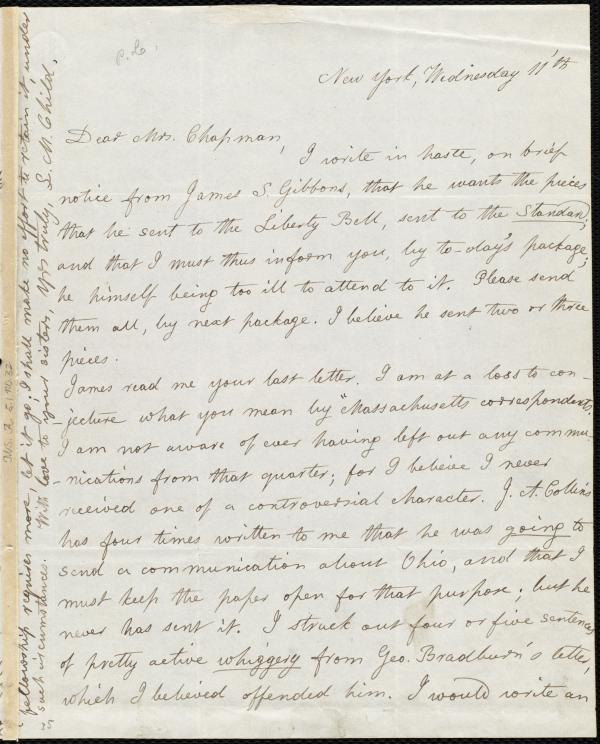 New York, Wednesday 11'th
Dear Mrs. Chapman,
I write in haste, on brief
notice from James S. Gibbons, that he wants the pieces
that he sent to the Liberty Bell, sent to the Standard,
and that I must thus inform you, by to-day's package;
he himself being too ill to attend to it. Please send
them all, by next package. I believe he sent two or three
pieces.
James read me your last letter. I am at a loss to con-
jecture what you mean by "Massachusetts correspondents."
I am not aware of ever having left out any commu-
nications from that quarter; for I believe I never
received one of a controversial character. J. A. Collins
has four times written to me that he was going to
send a communication about Ohio, and that I
must keep the paper open for that purpose; but he
never has sent it. I struck out four or five sentences
of pretty active whiggery from Geo. Bradburn's letter,
which I believed offended him. I would write an
fellowship requires more let it go; I shall make no effort to retain it, under
such circumstances. With love to your sisters, Yrs truly, L. M. Child.